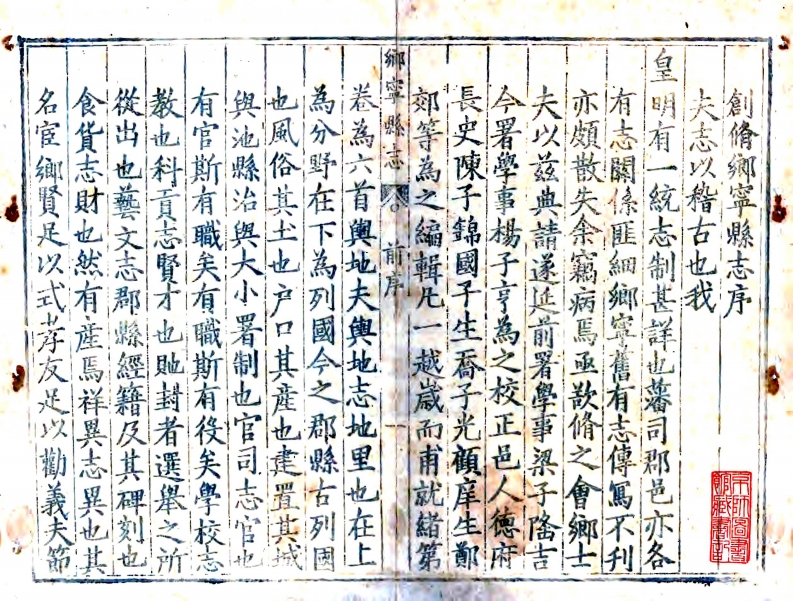 創脩鄉寧縣志序
夫志以稽古也我
皇明有一統志制甚詳也藩司郡邑亦各
有志關係匪細鄉寧舊有志傳寫不刋
亦頗散失余竊病焉亟欲脩之會鄉士
夫以茲典請遂延前署學事梁子隆吉
今署學事楊子亨為之校正邑人德府
長史陳子錦國子生喬子光顧庠生鄭
郊等為之編輯凢一越歲而甫就緒第
鄉寧縣志
前序
一
卷為六首輿地夫輿地志地里也在上
為分野在下為列國今之郡縣古列國
也風俗其土也户口其產也建置其城
與池縣治與大小署制也官司志官也
有官斯有職矣有職斯有役矣學校志
教也科貢志賢才也貤封者選舉之所
從出也藝文志郡縣經籍及其碑刻也
食貨志財也然有産焉祥異志異也其
名宦鄉賢足以式孝友足以勸義夫節
京師圖書
館藏書章